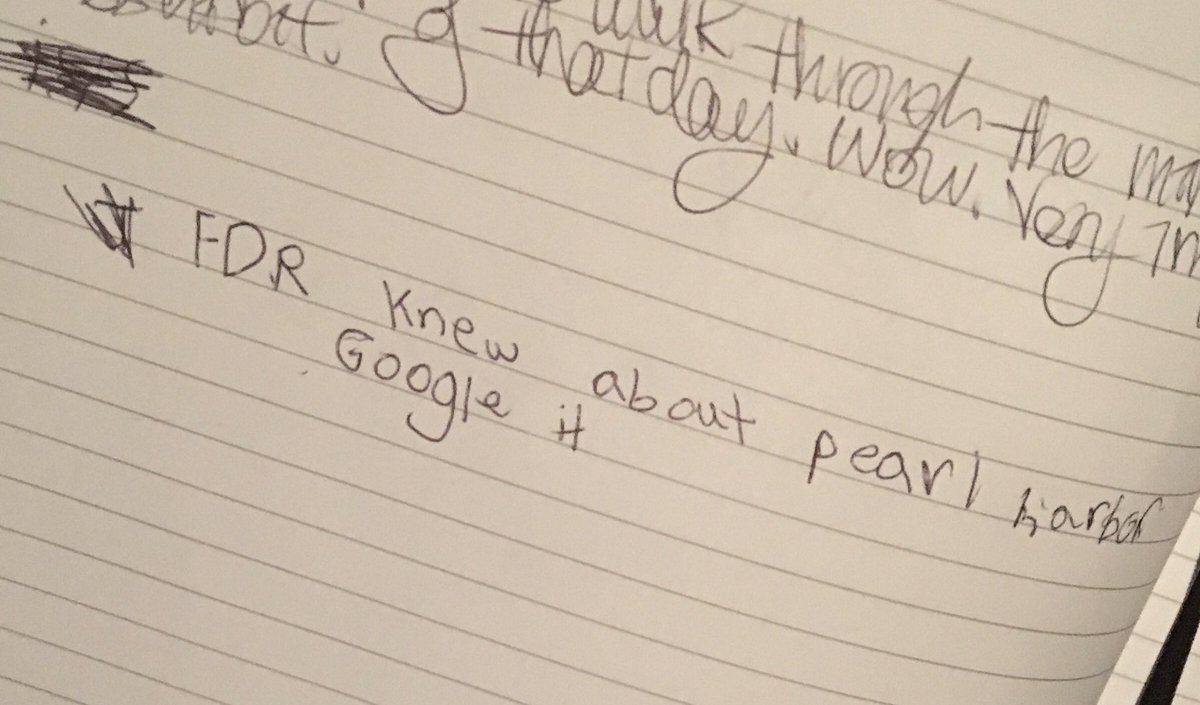 walk through the
that day. Wow. Very
FDR Knew about pearl harbor
Google it